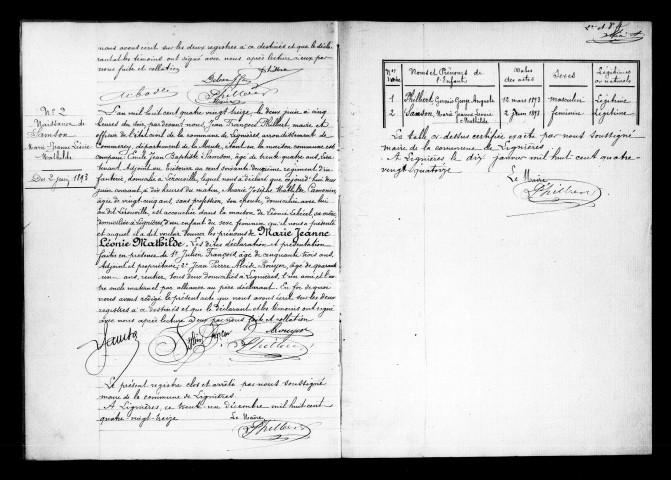 nous avons écrit sur les deux registres à ce destinés et que le décla-
rant et les témoins ont signé avec nous après lecture à eux par
nous faite et collation
Philbert
Maire
N° 2
Naissance de
Samson
Marie-Jeanne Léonie
Mathilde
Du 2 juin 1893
L'an mil huit cent quatre vingt treize, le deux juin à cinq
heures du soir, par devant nous, Jean François Philbert, maire et
officier de l'état civil de la commune de Lignières, arrondissement de
Commercy, département de la Meuse, étant en la maison commune est
comparu Emile Jean Baptiste Samson, âgé de trente quatre ans, lieu-
tenant, Adjoint au trésorier au cent cinquante unième régiment d'in-
fanterie, domicilié à Lérouville, lequel nous a déclaré que cejourd'hui deux
juin courant, à dix heures du matin, Marie Josèphe Mathilde
âgée de vingt cinq ans, sans profession, son épouse, domiciliée avec lui
au dit Lérouville, est accouchée dans la maison de Léonie
domiciliée à Lignières d'un enfant du sexe féminin qu'il nous a présenté
et auquel il a dit vouloir donner les prénoms de Marie Jeanne
Léonie Mathilde. Les dites déclaration et présentation
faites en présence de 1° Julien François, âgé de cinquante trois ans,
Adjoint et propriétaire; 2° Jean Pierre Alcide Rouyer, âgé de quarante
un ans, rentier, tous deux domiciliés à Lignières, l'un ami et l'au-
tre oncle maternel par alliance au père déclarant. En foi de quoi
nous avons rédigé le présent acte que nous avons écrit sur les deux
registres à ce destinés et que le déclarant et les témoins ont signé
avec nous après lecture à eux par nous faite et collation
Samson
Julien François
Rouyer
Philbert
Le présent registre clos et arrêté par nous soussigné
maire de la commune de Lignières.
A Lignières, ce trente-un décembre mil huit cent
quatre-vingt-treize
Le Maire,
Philbert
Nos d'ordre | Noms et Prénoms de l'Enfant | Dates des actes | Sexes | Légitimes ou naturels
1 | Philbert, Georges Auguste | 12 mars 1893 | masculin | Légitime
2 | Samson, Marie Jeanne Léonie Mathilde | 2 Juin 1893 | féminin | Légitime
La table ci dessus certifiée exacte par nous soussigné
maire de la commune de Lignières
A Lignières le dix janvier mil huit cent quatre
vingt quatorze
Le Maire
Philbert